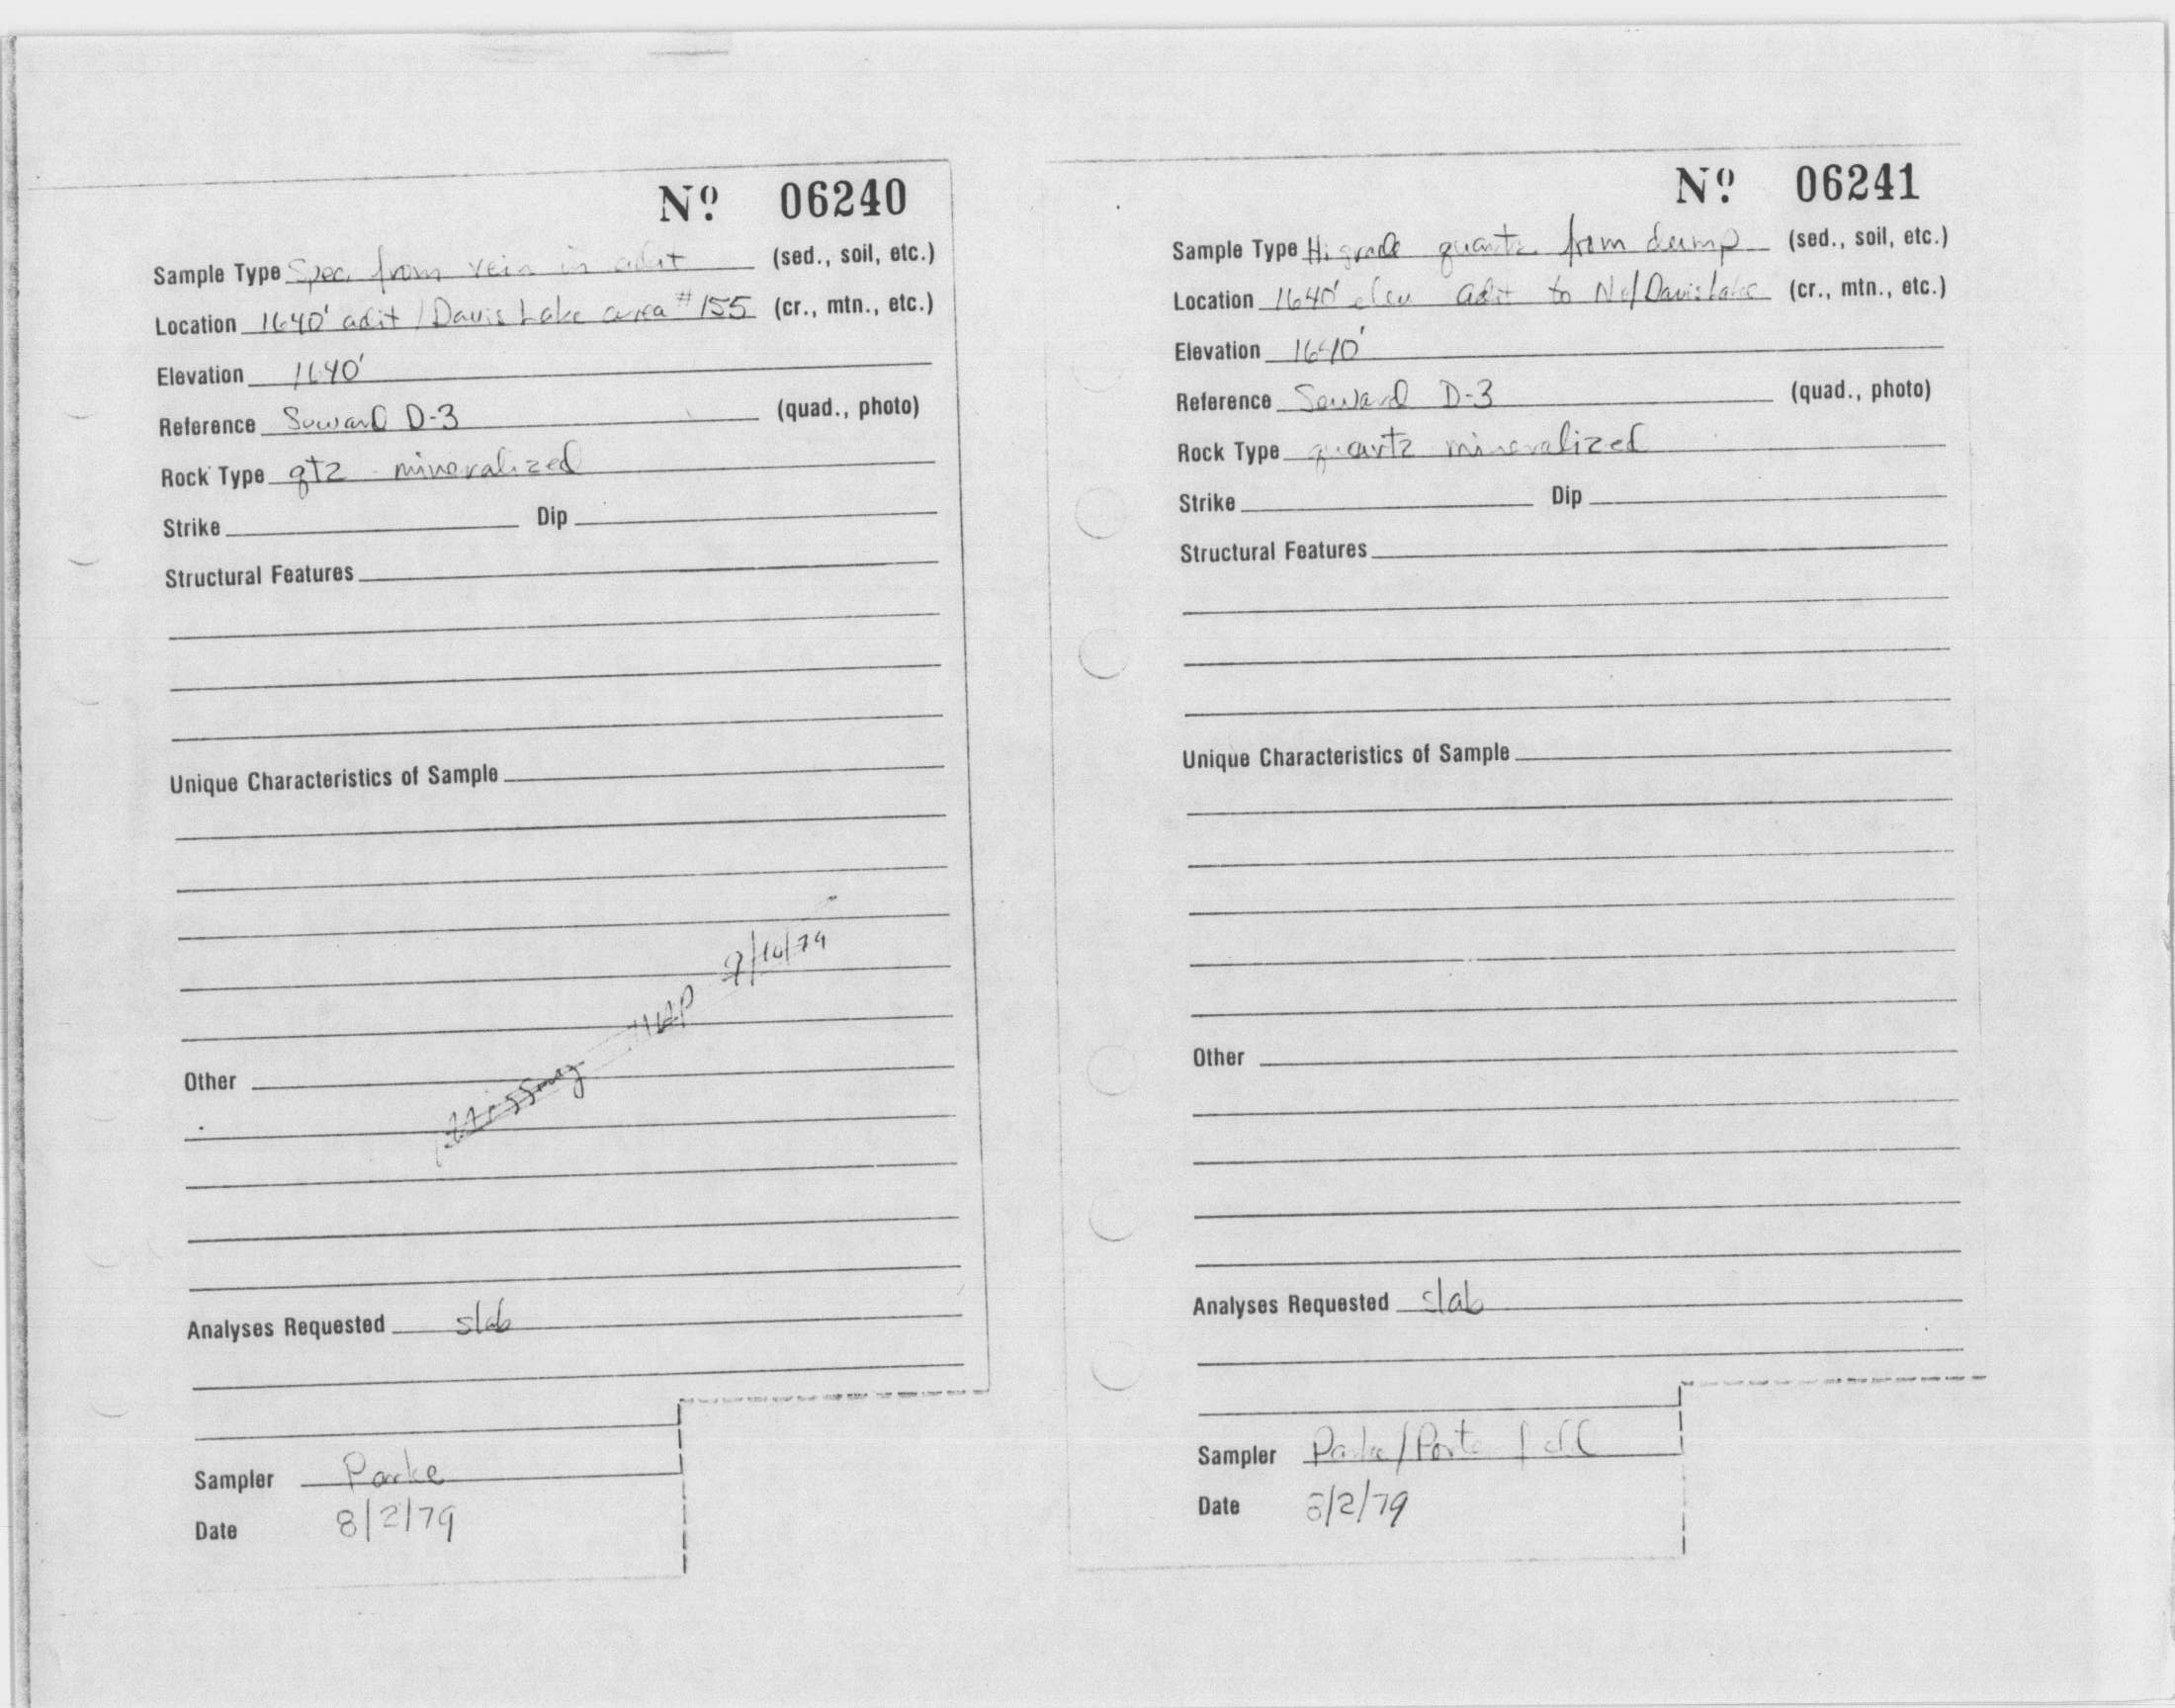 Nº 06240
Sample Type Spec. from vein in adit (sed., soil, etc.)
Location 1640' adit / Davis Lake area #155 (cr., mtn., etc.)
Elevation 1640'
Reference Seward D-3 (quad., photo)
Rock Type qtz mineralized
Strike Dip
Structural Features
Unique Characteristics of Sample
9/10/79
Other
Missing
Analyses Requested slab
Sampler Parke
Date 8/2/79
Nº 06241
Sample Type Hi grade quartz from dump (sed., soil, etc.)
Location 1640' elev adit to N of Davis Lake (cr., mtn., etc.)
Elevation 1640'
Reference Seward D-3 (quad., photo)
Rock Type quartz mineralized
Strike Dip
Structural Features
Unique Characteristics of Sample
Other
Analyses Requested slab
Sampler Parke/Porterfield
Date 8/2/79